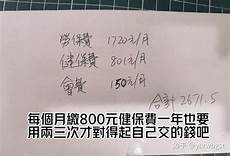 勞保費 1720元/月
健保費 801元/月
會費 150元/月
合計 2671.5
每個月繳800元健保費一年也要
用兩三次才對得起自己交的錢吧